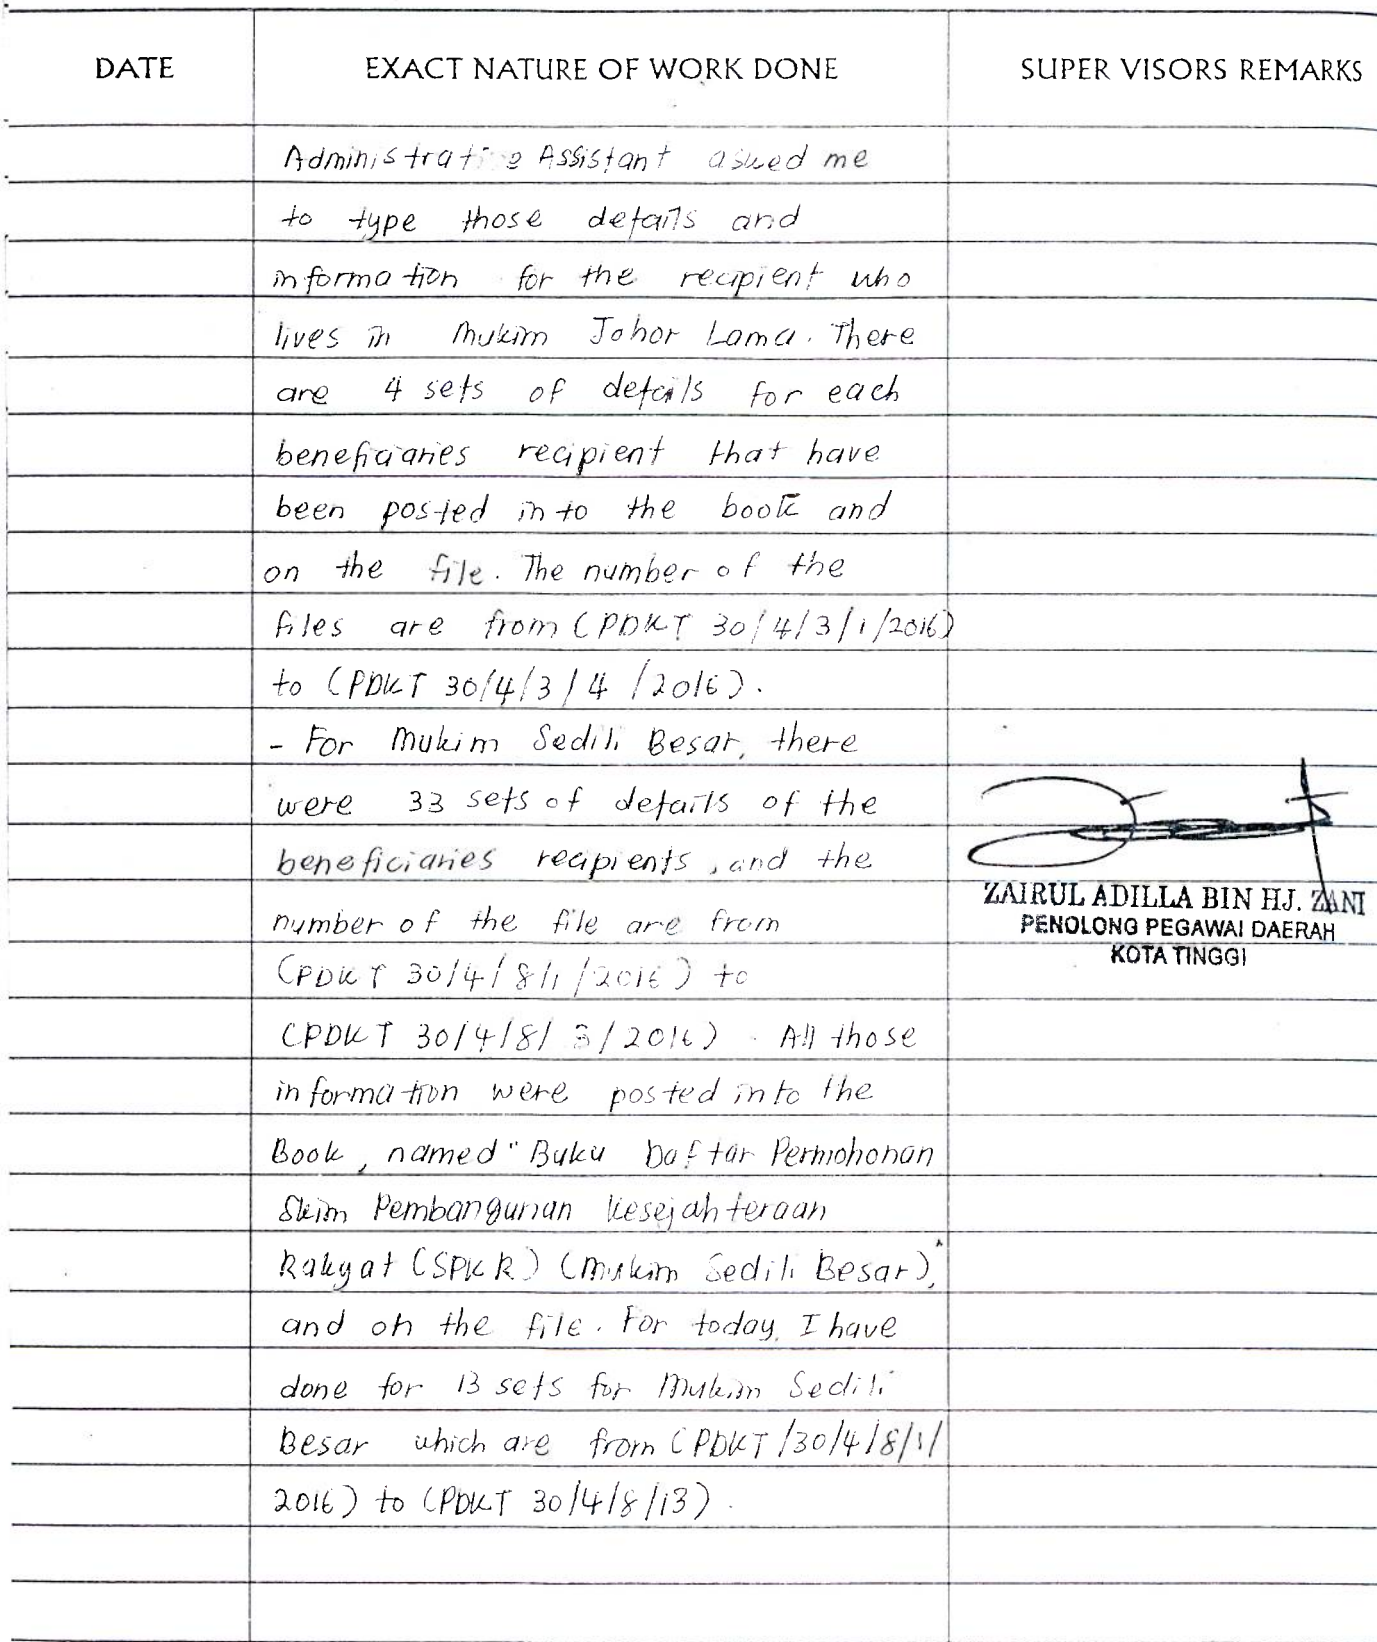 DATE EXACT NATURE OF WORK DONE SUPER VISORS REMARKS
Administrative Assistant asked me
to type those details and
information for the recipient who
lives in Mukim Johor Lama. There
are 4 sets of details for each
beneficiaries recipient that have
been posted into the book and
on the file. The number of the
files are from (PDKT 30/4/3/1/2016)
to (PDKT 30/4/3/4/2016).
- For Mukim Sedili Besar, there
were 33 sets of details of the
beneficiaries recipients, and the
number of the file are from
(PDKT 30/4/8/1/2016) to
(PDKT 30/4/8/3/2016). All those
information were posted into the
Book, named "Buku Daftar Permohonan
Skim Pembangunan Kesejahteraan
Rakyat (SPKR) (Mukim Sedili Besar)",
and on the file. For today, I have
done for 13 sets for Mukim Sedili
Besar which are from (PDKT/30/4/8/1/
2016) to (PDKT 30/4/8/13).
ZAIRUL ADILLA BIN HJ. ZANI
PENOLONG PEGAWAI DAERAH
KOTA TINGGI